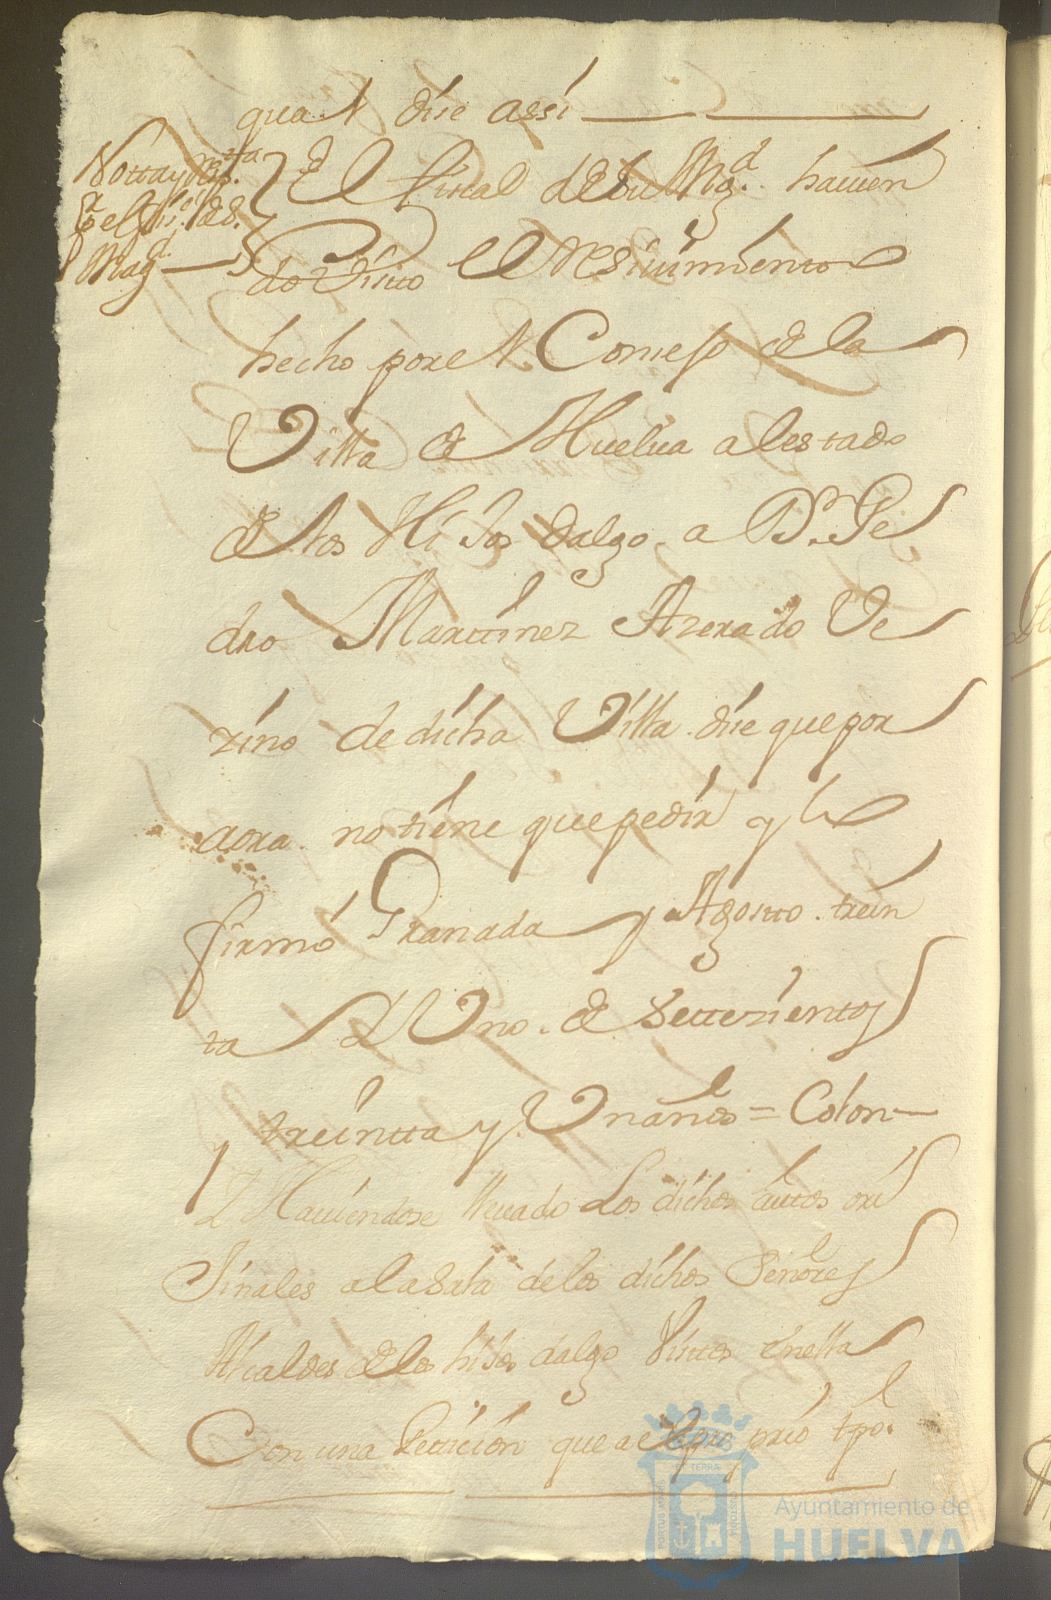 qual diie assi
Notta y Rta
el fiscal de su Magd. havien
del fis. de S.
Magd
do visto el resivimiento
hecho por el Consejo de la
Villa de Huelva al estado
de los Hijos dalgo a Dn. Pe
dro Martinez Azerado Ve
zino de dicha Villa diie que por
aora no tiene que pedir y lo
firmó Granada y Agosto trein
ta y Uno de Settezientos
y treintta y Un años = Colon
Y Haviendose llevado los dichos autos ori
Jinales a la Sala de los dichos Señores
Alcaldes de los hijos dalgo Vistos en ella
Con una Petticion que a el prio tpo.
Ayuntamiento de
HUELVA